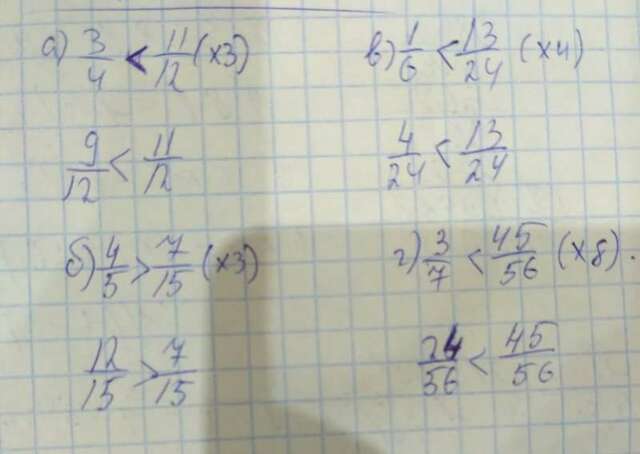 а) 3/4 < 11/12 (×3)
9/12 < 11/12
б) 4/5 > 7/15 (×3)
12/15 > 7/15
в) 1/6 < 13/24 (×4)
4/24 < 13/24
г) 3/7 < 45/56 (×8).
24/56 < 45/56